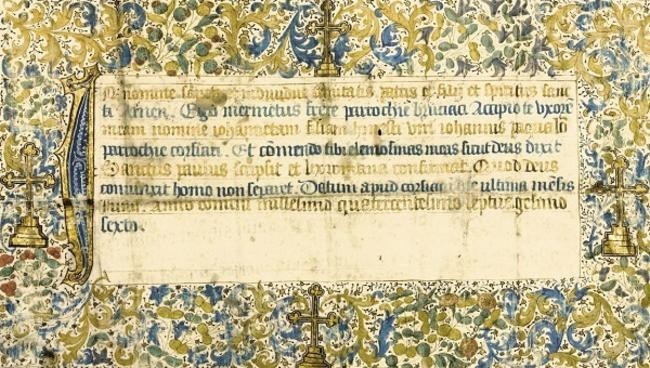 In nomine sancte et individue trinitatis patris et filii et spiritus sanc
ti Amen. Ego mermetus frere parrochie Accipio te vxorē
meam nomine iohannetam filiam viri iohannis
parrochie corsiaci. Et cōmendo tibi elemosinas meas sicut deus dixit
Sanctus paulus scripsit et lex romana confirmat. Quod deus
coniunxit homo non separet. Datum apud corsiacū die ultima mēsis
Anno domini millesimo quatercentesimo septuagesimo
sexto.